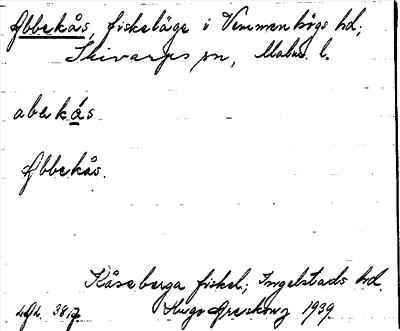 Abbekås, fiskeläge i Vemmenhögs hd;
Skivarps sn, Malm. l.
abekás
Abbekås.
Kåseberga fiskel; Ingelstads hd.
Hugo Areskoug 1939